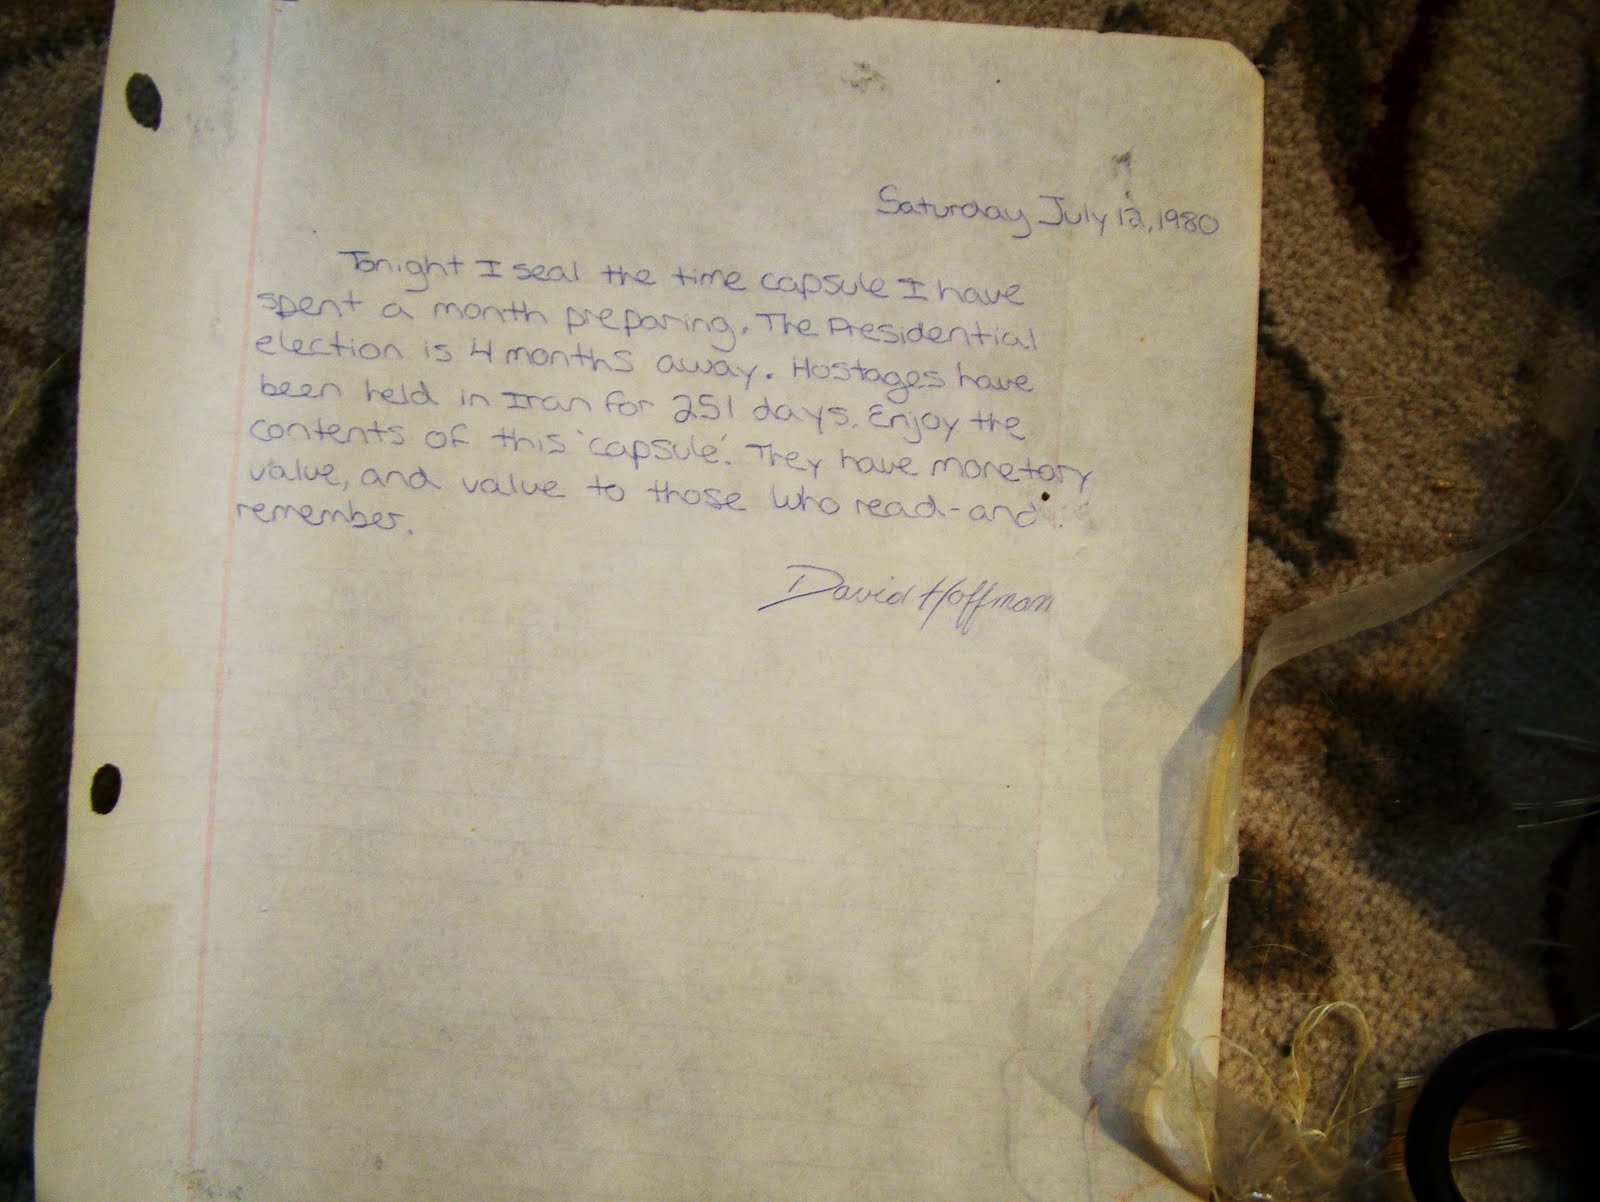 Saturday July 12, 1980
Tonight I seal the time capsule I have
spent a month preparing. The Presidential
election is 4 months away. Hostages have
been held in Iran for 251 days. Enjoy the
contents of this 'capsule'. They have monetary
value, and value to those who read-and
remember.
David Hoffman